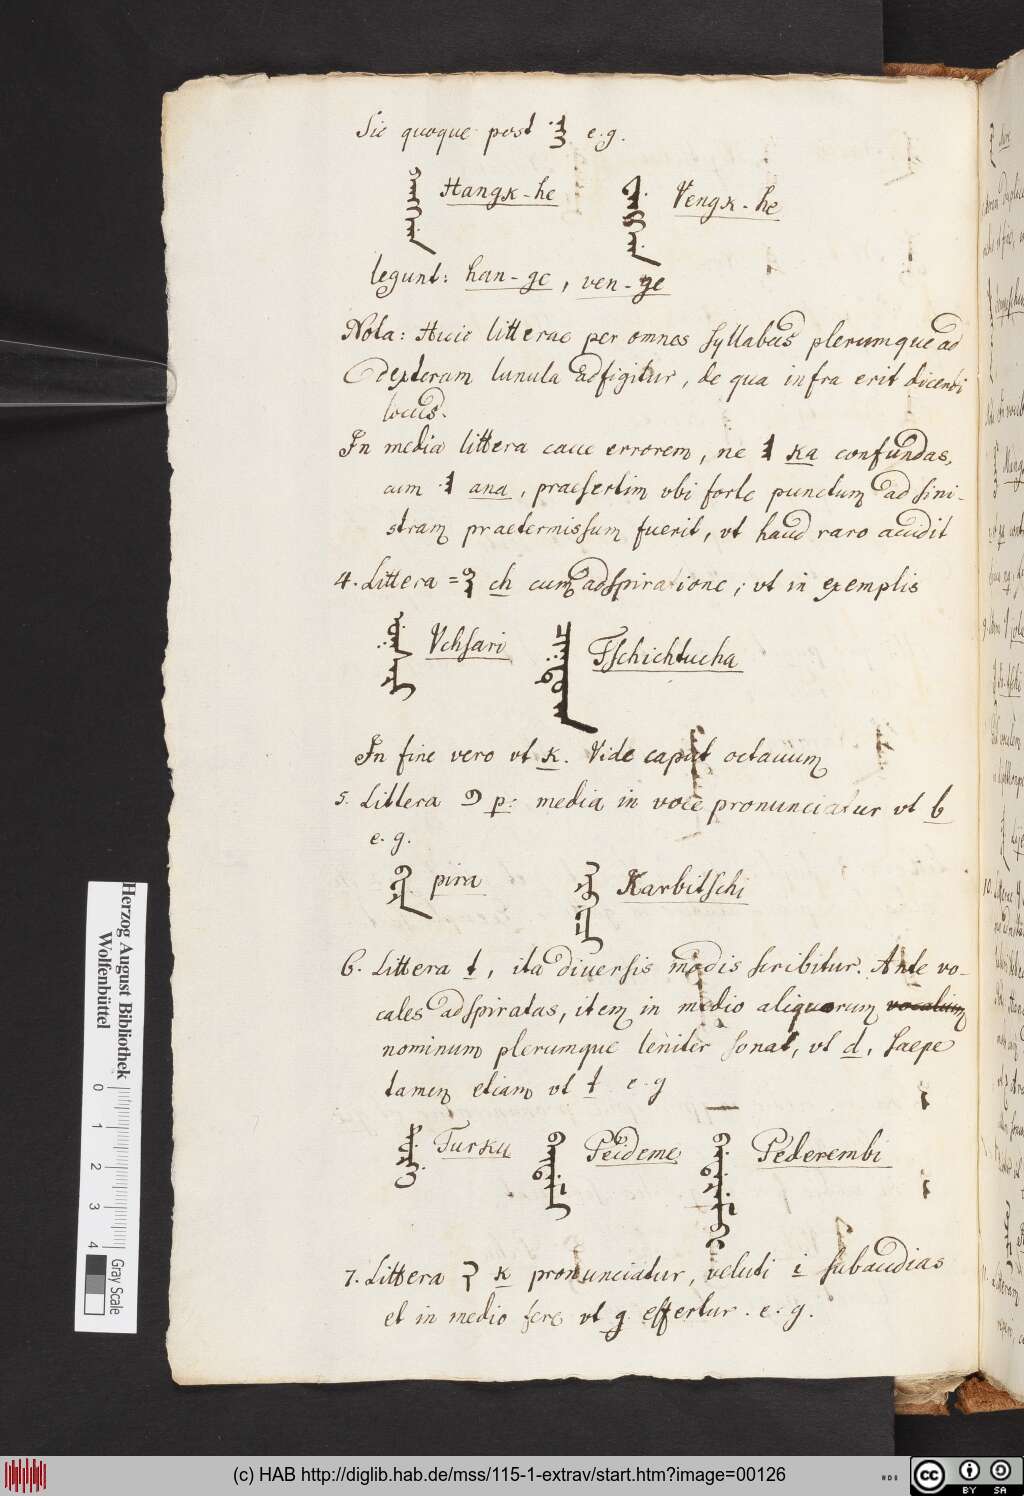 Sic quoque post e.g.
Hangk-he Vengk-he
legunt: han-ge, ven-ge
Nota: Huic litterae per omnes syllabas plerumque ad
dexteram lunula adfigitur, de qua infra erit dicendi
locus.
In media littera caue errorem, ne ka confundas,
cum ana, praesertim vbi forte punctum ad sini-
stram praetermissum fuerit, vt haud raro accidit
4. Littera = ch cum adspiratione; vt in exemplis
Vchsari Tschichtucha
In fine vero vt k. Vide caput octauum
5. Littera p: media in voce pronunciatur vt b
e.g.
pira Karbitschi
6. Littera t, ita diuersis modis scribitur. Ante vo-
cales adspiratas, item in medio aliquorum vocalium
nominum plerumque leniter sonat, vt d, saepe
tamen etiam vt t e.g
Turku Peideme Pederembi
7. Littera k pronunciatur, veluti i subaudias
et in medio fere vt g effertur. e.g.
Herzog August Bibliothek
Wolfenbüttel
0 1 2 3 4
Gray Scale
(c) HAB http://diglib.hab.de/mss/115-1-extrav/start.htm?image=00126
cc BY SA